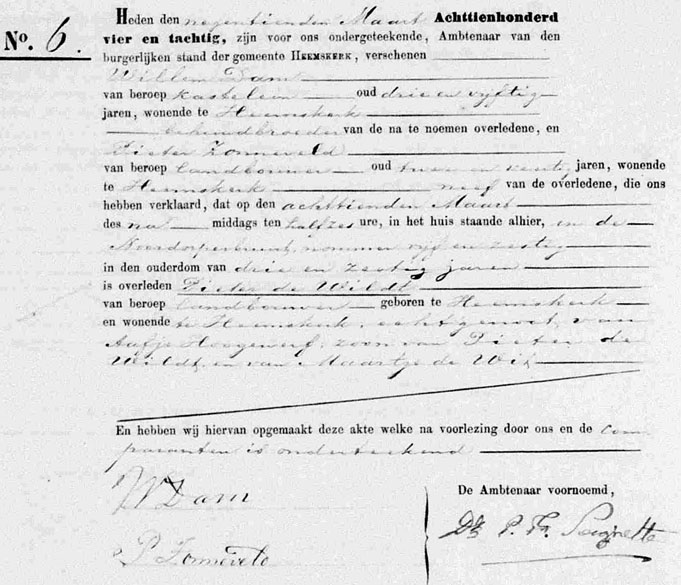 Heden den negentienden Maart Achttienhonderd
No. 6.
vier en tachtig, zijn voor ons ondergeteekende, Ambtenaar van den
burgerlijken stand der gemeente HEEMSKERK, verschenen
Willem Dam
van beroep kastelein oud drie en vijftig
jaren, wonende te Heemskerk
behuwdbroeder van de na te noemen overledene, en
Pieter Zonneveld
van beroep landbouwer oud twee en jaren, wonende
te Heemskerk neef van de overledene, die ons
hebben verklaard, dat op den achttienden Maart
des na middags ten halfzes ure, in het huis staande alhier, in de
nommer vijf en zestig
in den ouderdom van drie en zestig jaren
is overleden Pieter de Wildt
van beroep landbouwer geboren te Heemskerk
en wonende te Heemskerk, echtgenoot van
Aafje Hoogewerf, zoon van Pieter de
Wildt en van Maartje de Wit
En hebben wij hiervan opgemaakt deze akte welke na voorlezing door ons en de Com
paranten is onderteekend
De Ambtenaar voornoemd,
W Dam
P. Zonneveld